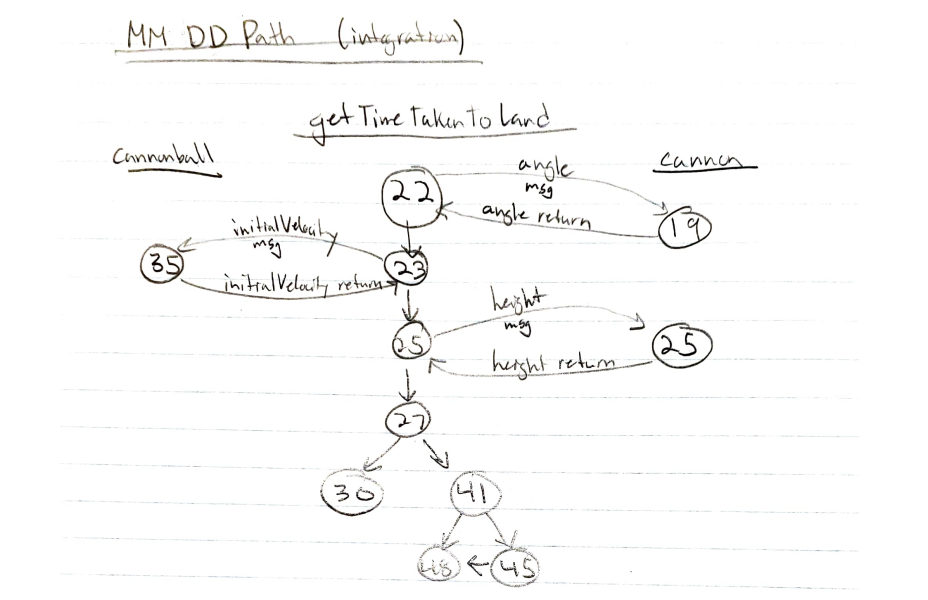 MM DD Path (integration)
getTimeTakenToLand
Cannonball
cannon
angle
msg
22
angle return
19
initialVelocity
msg
35
23
initialVelocity return
height
msg
25
25
height return
27
30
41
48
45